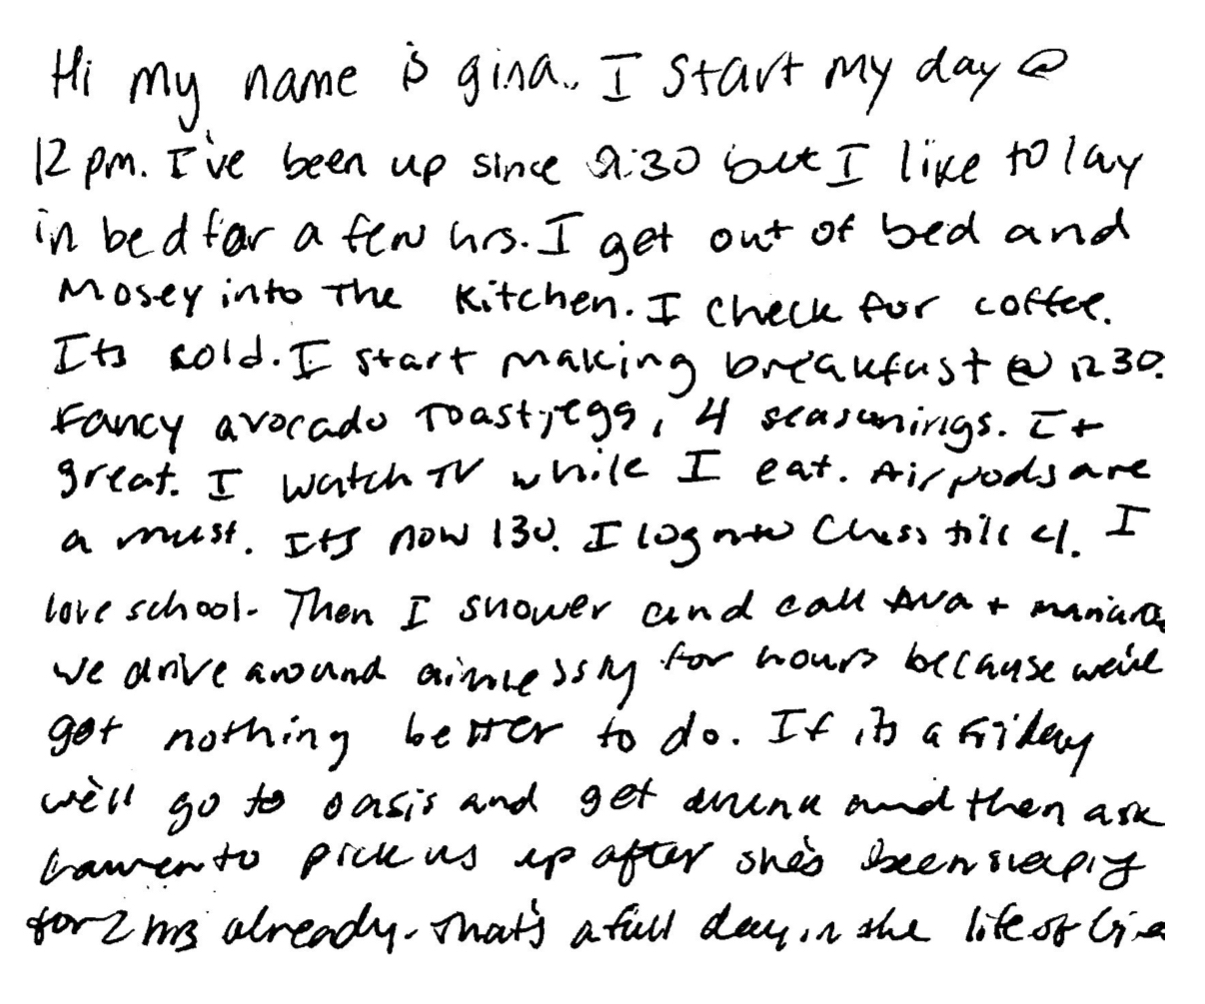 Hi my name is gina.. I start my day @
12 pm. I've been up since 9:30 but I like to lay
in bed for a few hrs. I get out of bed and
Mosey into The Kitchen. I check for coffee.
Its cold. I start making breakfast @ 1230.
Fancy avocado Toast, egg, 4 seasonings. It
great. I watch TV while I eat. Air pods are
a must. Its now 130. I log into Class till 4. I
love school. Then I shower and call Ava +
We drive around aimlessly for hours because we've
got nothing better to do. If its a Friday
we'll go to oasis and get drunk and then ask
to pick us up after she's been sleeping
for 2 hrs already. That's a full day in the life of